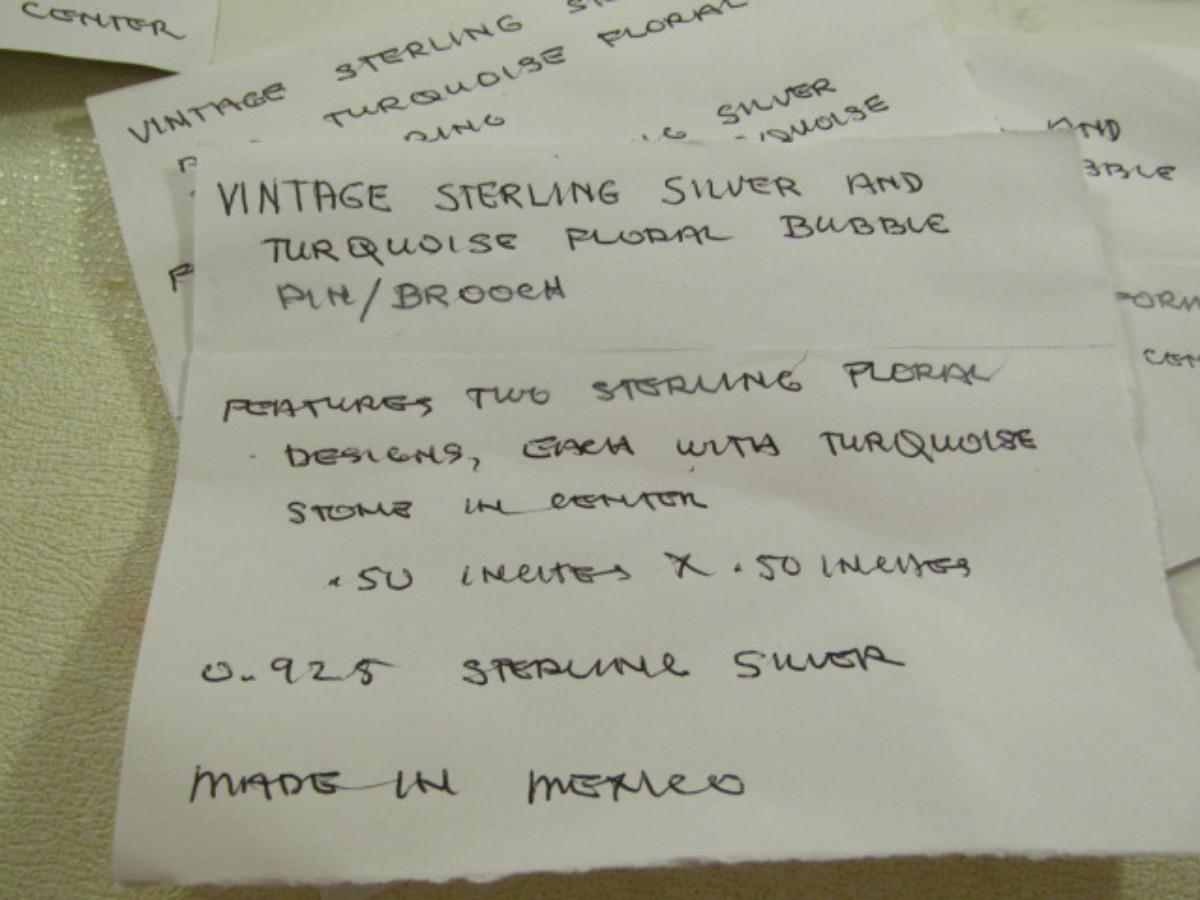 CENTER
VINTAGE STERLING
TURQUOISE FLORAL
RING
SILVER
AND
VINTAGE STERLING SILVER AND
TURQUOISE FLORAL BUBBLE
PIN/BROOCH
FEATURES TWO STERLING FLORAL
DESIGNS, EACH WITH TURQUOISE
STONE IN CENTER
.50 INCHES X .50 INCHES
0.925 STERLING SILVER
MADE IN MEXICO